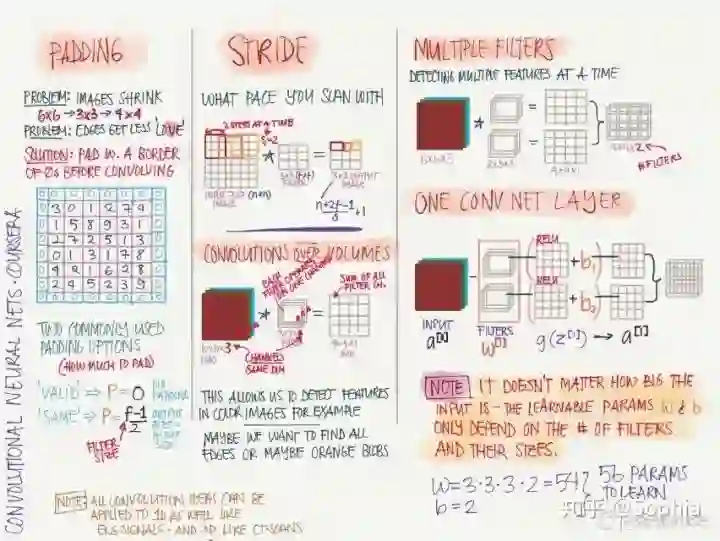 CONVOLUTIONAL NEURAL NETS · COURSERA
PADDING
PROBLEM: IMAGES SHRINK
6x6 → 3x3 → 4x4
PROBLEM: EDGES GET LESS 'LOVE'
SOLUTION: PAD W. A BORDER
OF 0s BEFORE CONVOLVING
3 0 1 2 7 4
1 5 8 9 3 1
2 7 2 5 1 3
0 1 3 1 7 8
4 2 1 6 2 8
2 4 5 2 3 9
TWO COMMONLY USED
PADDING OPTIONS
(HOW MUCH TO PAD)
'VALID' ⇒ P=0 NO PADDING
'SAME' ⇒ P= f-1/2
FILTER
SIZE
NOTE: ALL CONVOLUTION IDEAS CAN BE
APPLIED TO 1D AS WELL LIKE
EKG SIGNALS - AND 3D LIKE CT-SCANS
STRIDE
WHAT PACE YOU SCAN WITH
2 STEPS AT A TIME
S=2
* =
CONVOLUTIONS OVER VOLUMES
SUM OF ALL
* =
CHANNELS
SAME DIM
THIS ALLOWS US TO DETECT FEATURES
IN COLOR IMAGES FOR EXAMPLE
MAYBE WE WANT TO FIND ALL
EDGES OR MAYBE ORANGE BLOBS
MULTIPLE FILTERS
DETECTING MULTIPLE FEATURES AT A TIME
* = =
#FILTERS
ONE CONV NET LAYER
RELU
+ b₁
RELU
+ b₂
INPUT FILTERS
g(z[1]) → a[1]
NOTE IT DOESN'T MATTER HOW BIG THE
INPUT IS - THE LEARNABLE PARAMS W & b
ONLY DEPEND ON THE # OF FILTERS
AND THEIR SIZES.
W=3·3·3·2=54 56 PARAMS
b=2 TO LEARN
知乎 @Sophia